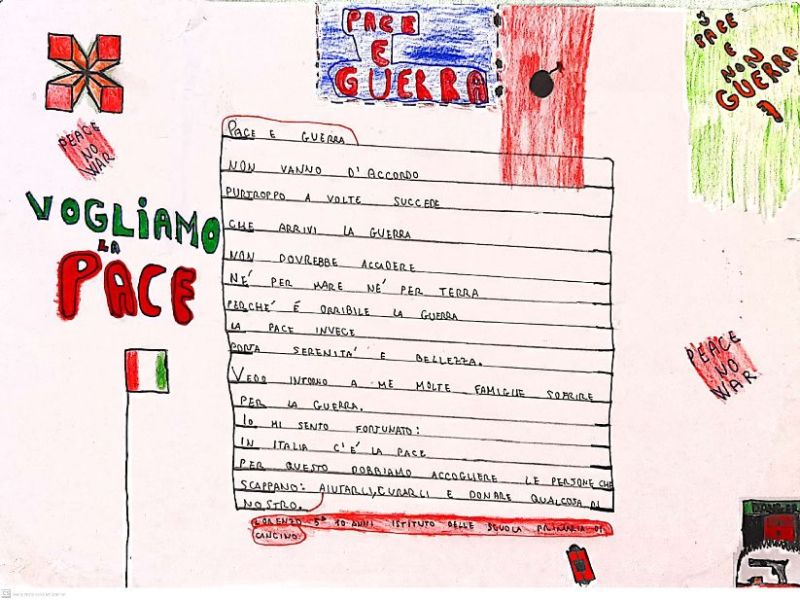 PACE
E
GUERRA
PACE
E
NON
GUERRA
PEACE
NO
WAR
VOGLIAMO
LA
PACE
PACE E GUERRA
NON VANNO D'ACCORDO
PURTROPPO A VOLTE SUCCEDE
CHE ARRIVI LA GUERRA
NON DOVREBBE ACCADERE
NE' PER MARE NE' PER TERRA
PERCHE' É ORRIBILE LA GUERRA
LA PACE INVECE
PORTA SERENITA' E BELLEZZA.
VEDO INTORNO A ME MOLTE FAMIGLIE SOFRIRE
PER LA GUERRA.
IO MI SENTO FORTUNATO:
IN ITALIA C'É LA PACE
PER QUESTO DOBBIAMO ACCOGLIERE LE PERSONE CHE
SCAPPANO: AIUTARLI, CURARLI E DONARE QUALCOSA DI
NOSTRO.
LORENZO 5ª 10 ANNI ISTITUTO DELLE SCUOLA PRIMARIA DI
CANCINO
PEACE
NO
WAR
DANGER